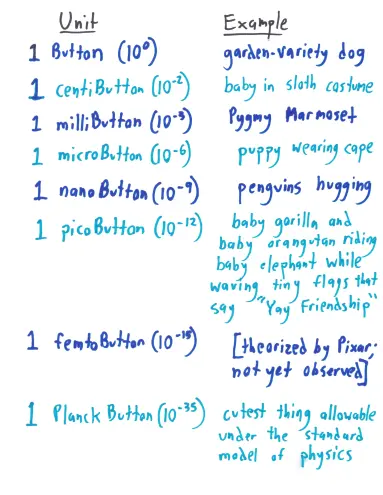 Unit Example
1 Button (10⁰) garden-variety dog
1 centiButton (10⁻²) baby in sloth costume
1 milliButton (10⁻³) Pygmy Marmoset
1 microButton (10⁻⁶) puppy wearing cape
1 nanoButton (10⁻⁹) penguins hugging
1 picoButton (10⁻¹²) baby gorilla and
baby orangutan riding
baby elephant while
waving tiny flags that
say "Yay Friendship"
1 femtoButton (10⁻¹⁵) [theorized by Pixar,
not yet observed]
1 Planck Button (10⁻³⁵) cutest thing allowable
under the standard
model of physics